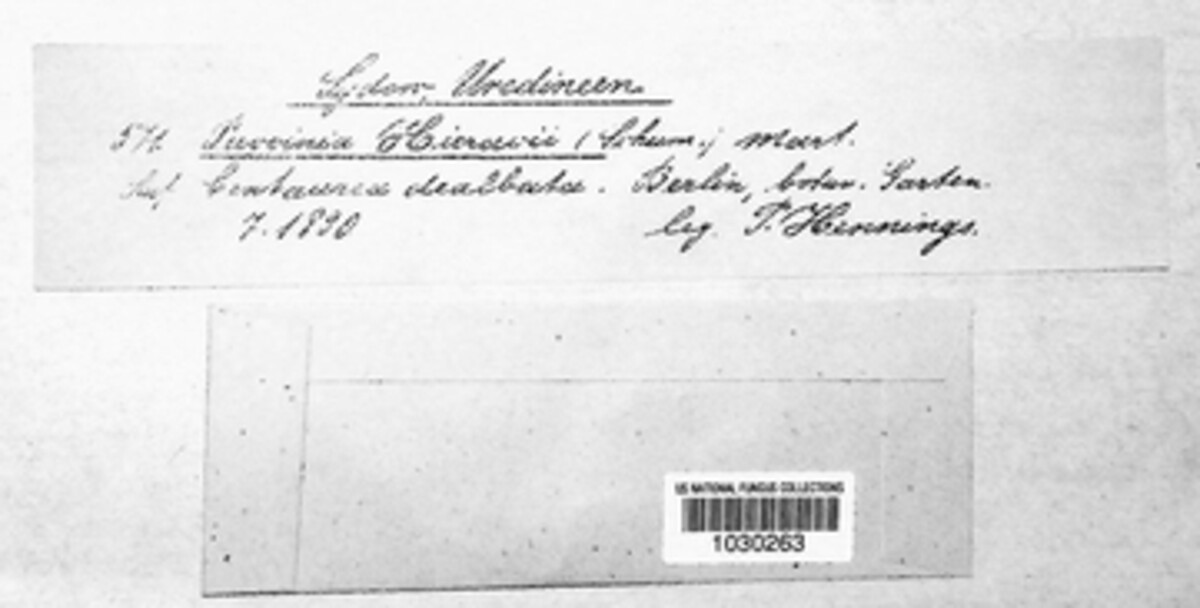 Sydow, Uredineen.
571. Puccinia Hieracii (Schum.) Mart.
Auf Centaurea dealbata. Berlin, botan. Garten.
7. 1890 leg. P. Hennings.
US NATIONAL FUNGUS COLLECTIONS
1030263